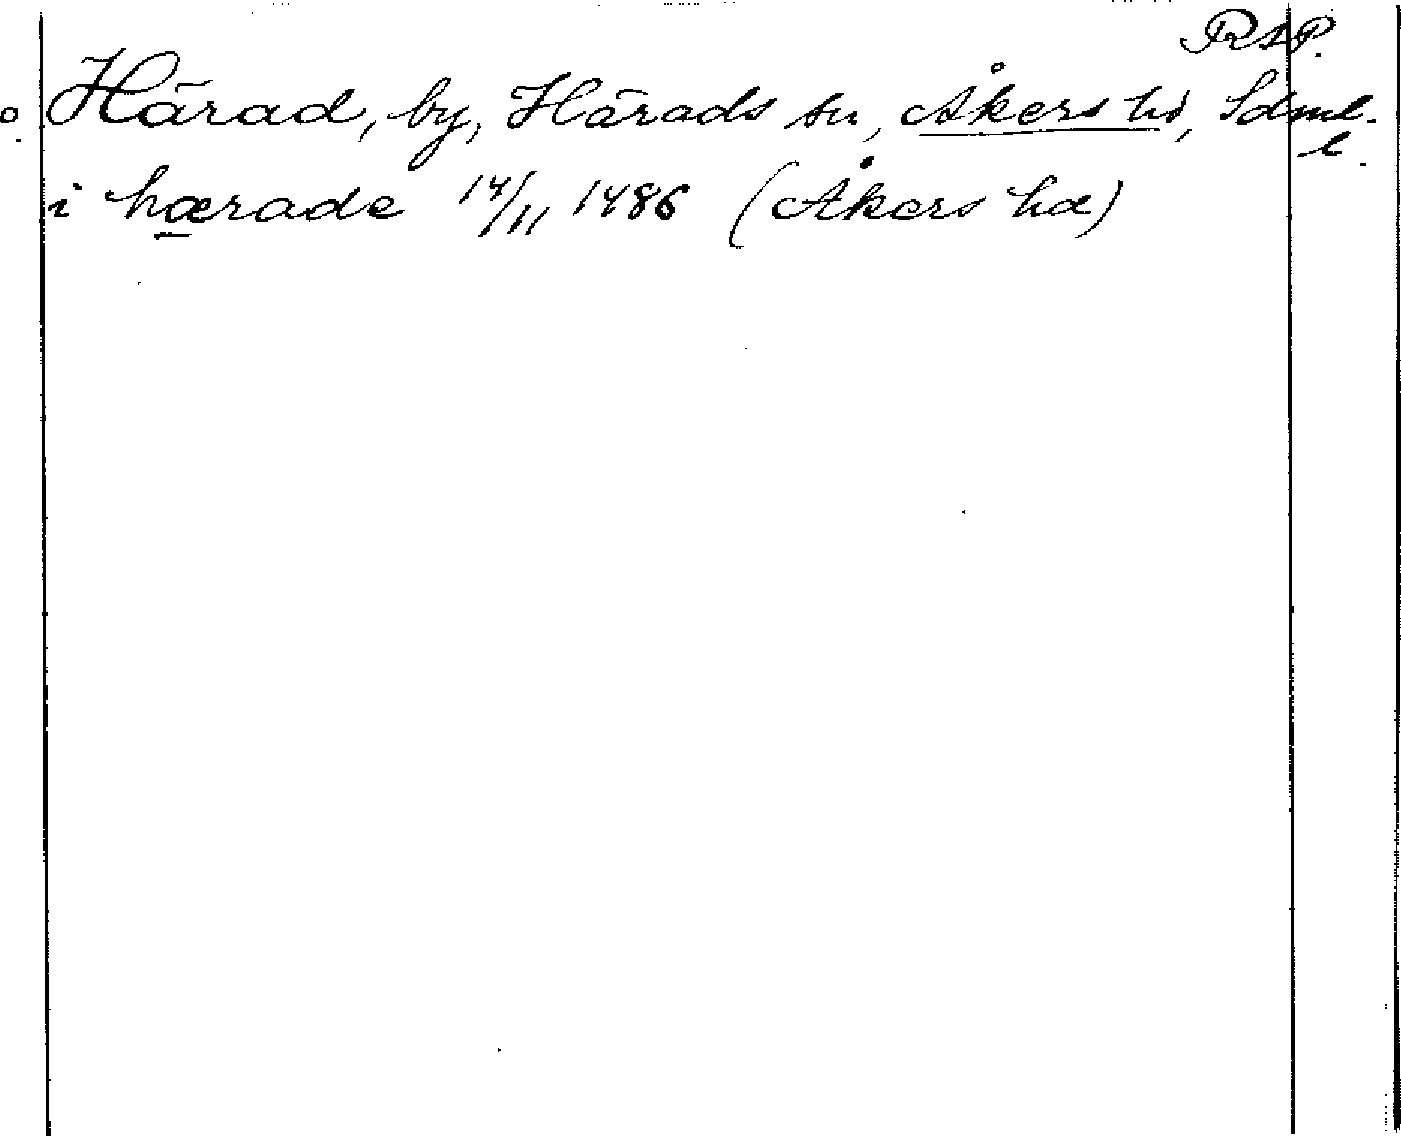 RAP.
Härad, by, Härads sn, Åkers hd, Sdml.
l.
i hærade 14/11 1486 (Åkers hd)